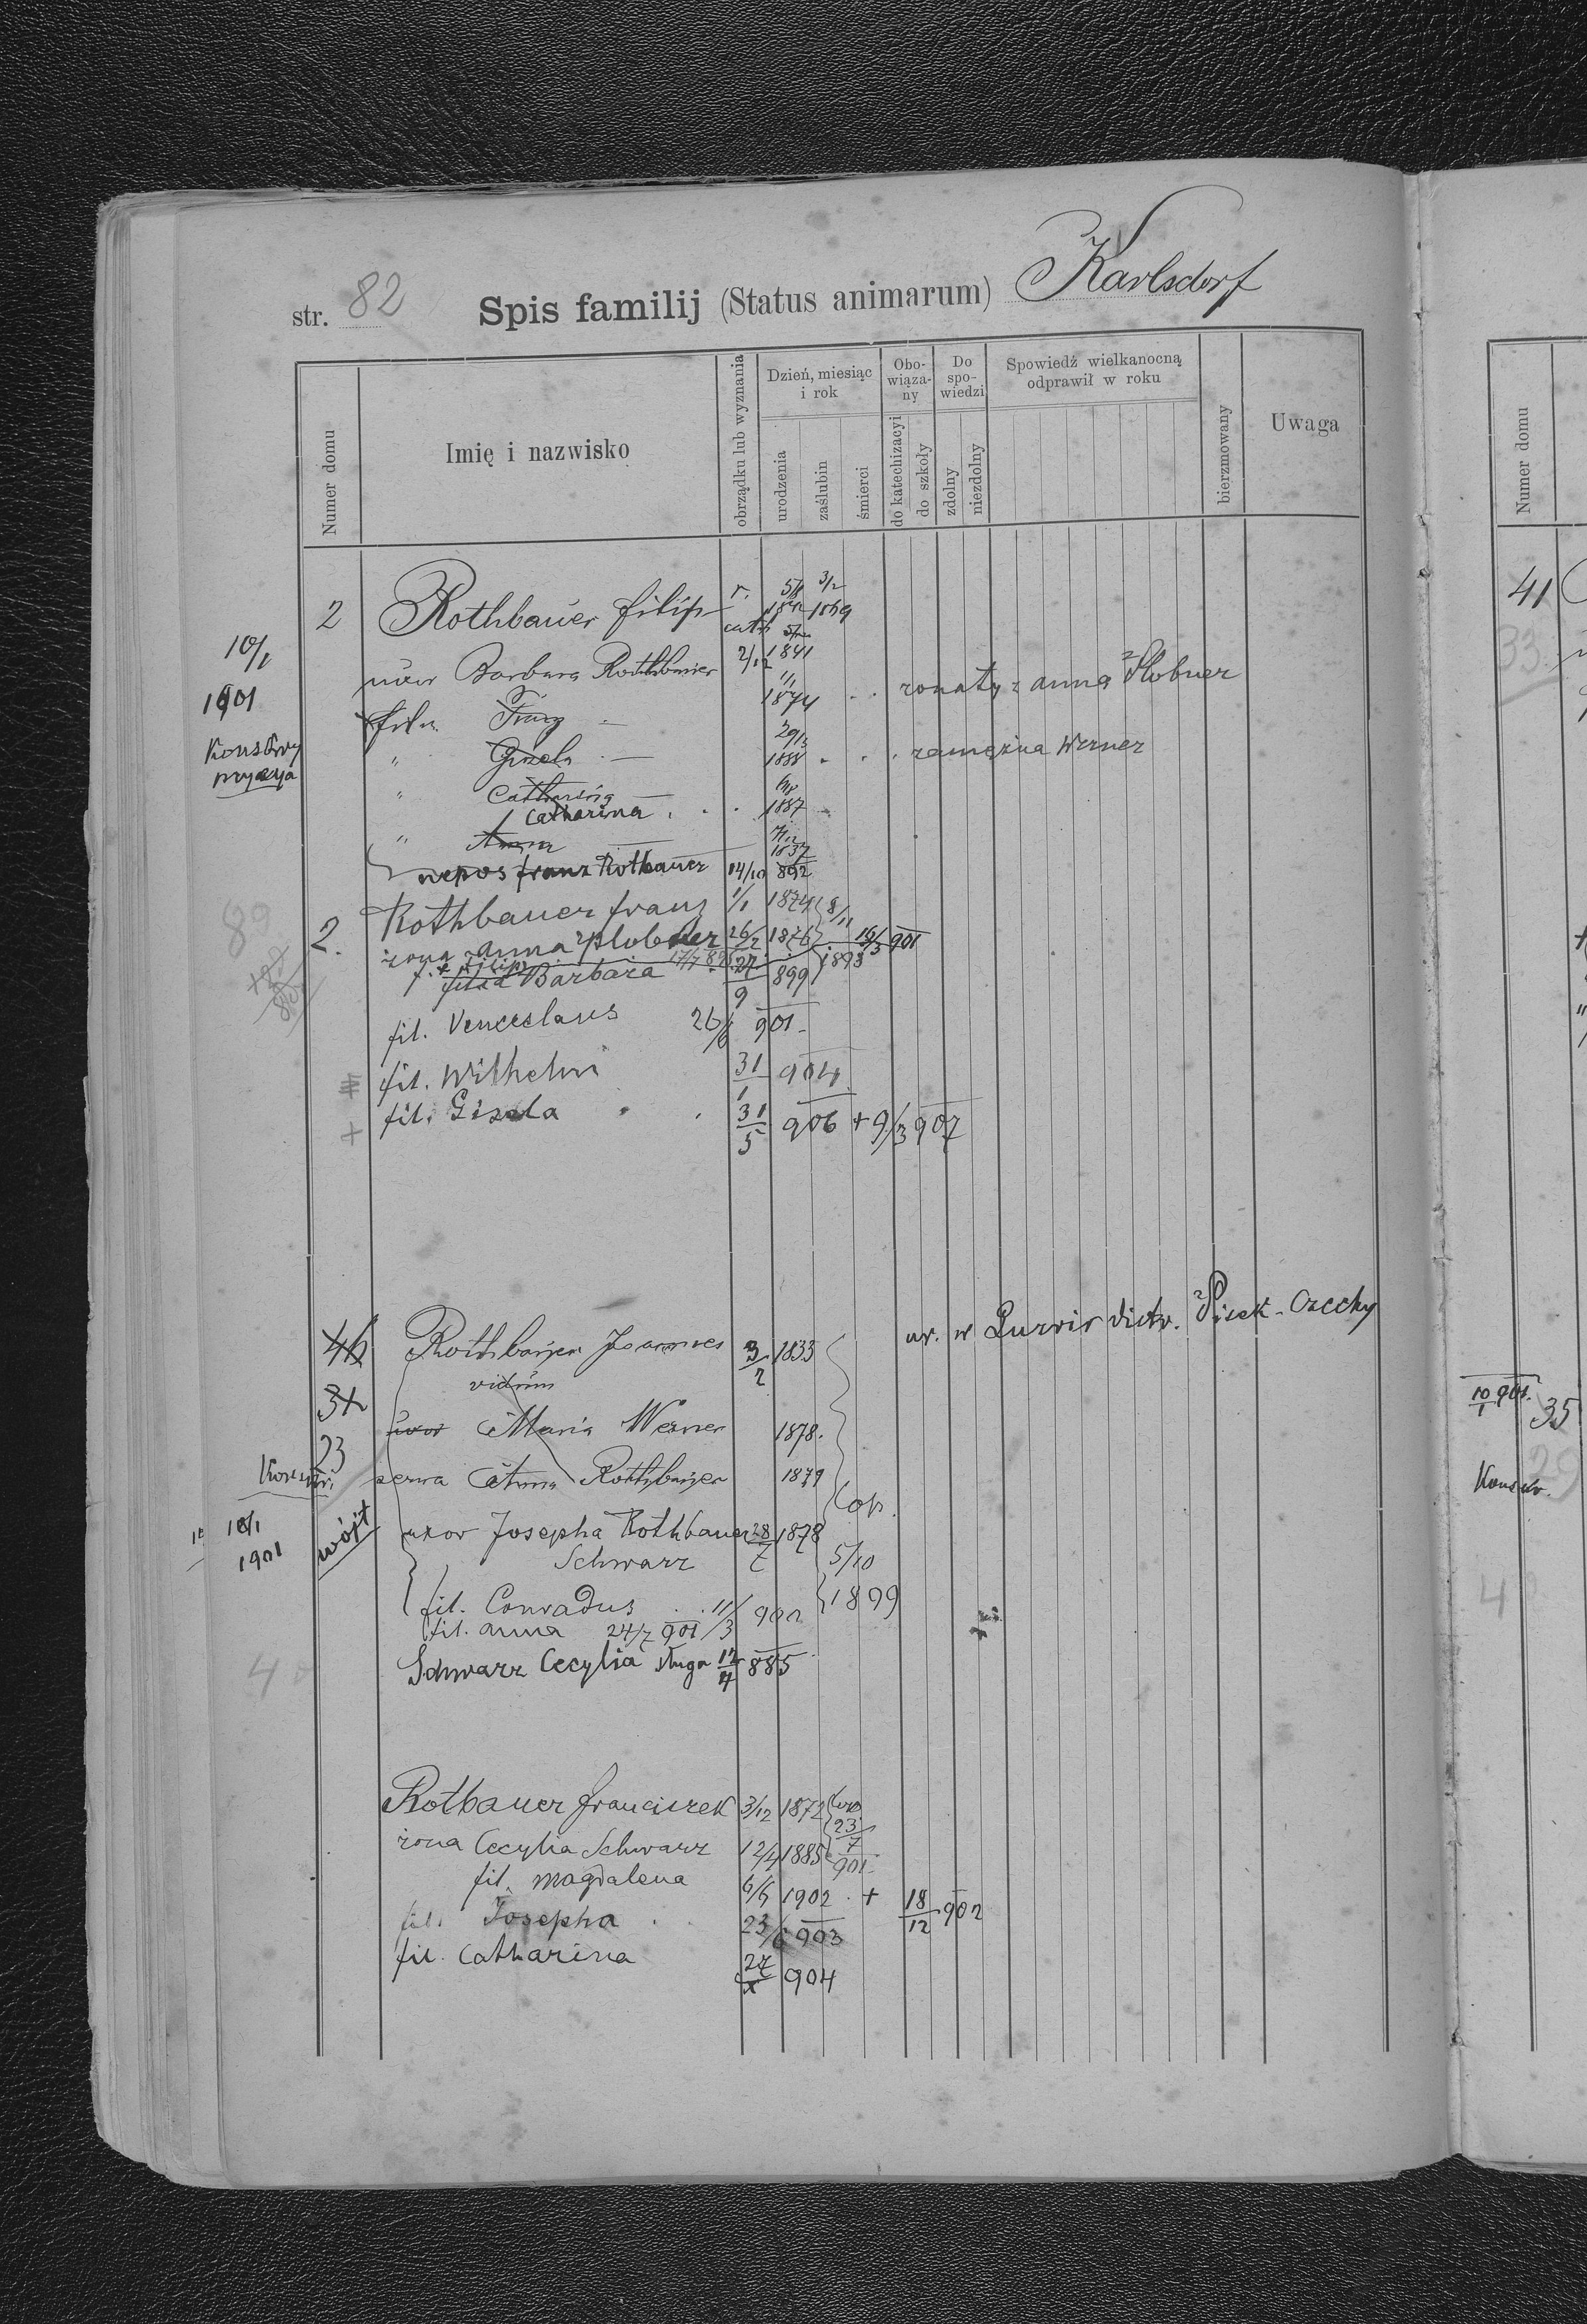 str. 82 Spis familij (Status animarum) Karlsdorf
Numer domu
Imię i nazwisko
obrządku lub wyznania
Dzień, miesiąc i rok
urodzenia
zaślubin
śmierci
Obo-wiąza-ny
do katechizacyi
do szkoły
Do spo-wiedzi
zdolny
niezdolny
Spowiedź wielkanocną odprawił w roku
bierzmowany
Uwaga
2 Rothbauer filip r. cath 1869
10/1 1901
uxor Barbara Rothbauer 2/12 1841
Franz 1874 żonaty z anna Plobner
" Gisela 29/3 1888 zamężna Werner
" Catharina
Catharina 1887
" Anna
nepos franz Rothbauer 14/10 892
89
2. Rothbauer franz 1/1 1874 8/11 1898
żona anna Plobner 26/2 1876 16/3 901
filip 17/7 895
filia Barbara 27/9 899
fil. Venceslaus 26/6 901
fil. Wilhelm 31/1 904
+ fil. Gisela 31/5 906 + 9/3 907
46 Rothbauer Joannes 3/2 1833
ur. w Pisek - Czechy
31 viduus
23 uxor Maria Werner 1878.
serva Anna Rothbauer 1879
10/1 1901 wójt
uxor Josepha Rothbauer 28/7 1878 Cop. 5/10 1899
Schwarz
fil. Conradus 11/3 900
fil. anna 24/7 901
Schwarz Cecylia sługa 12/4 885
Rotbauer franciszek 3/12 1872 23/7 901
żona Cecylia Schwarz 12/4 1885
fil. magdalena 6/6 1902 + 18/12 902
fil. Josepha 23/6 903
fil. Catharina 904
Numer domu
41
33
10/1 901. 35
29